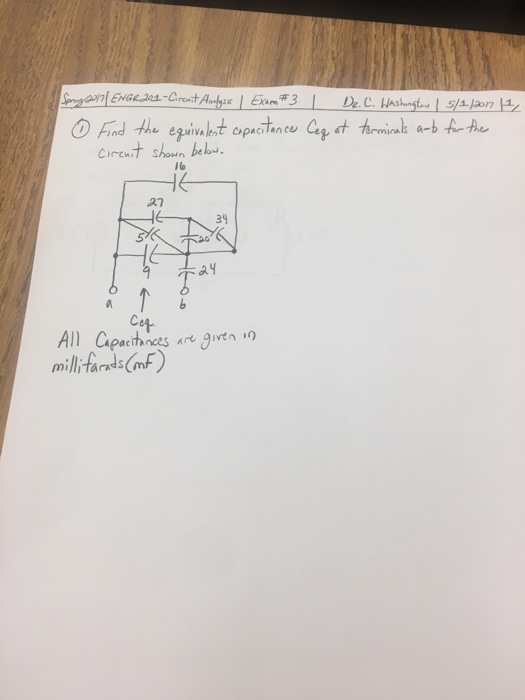 Spring 2017 | ENGR 201 - Circuit Analysis | Exam #3 | Dr. C. Washington | 5/1/2017 | 1
① Find the equivalent capacitance Ceq at terminals a-b for the
circuit shown below.
16
27
34
5
20
9
24
a
b
Ceq.
All Capacitances are given in
millifarads (mF)